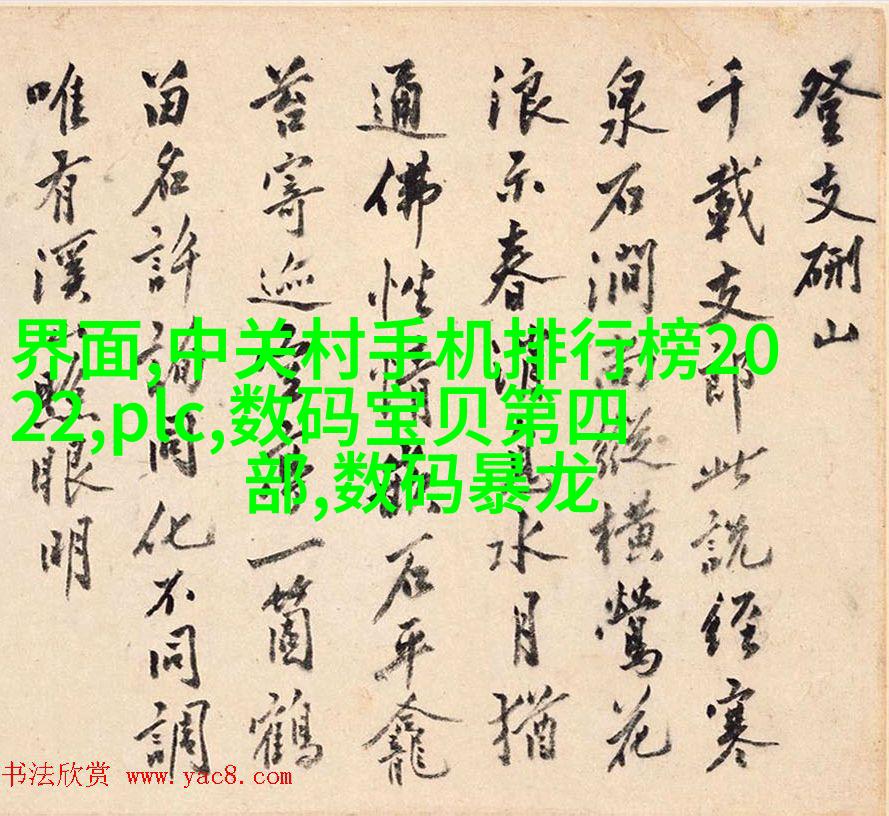 登支硎山
千載支郎此說經寒
泉石澗縱橫鶯花
浪示春消息水月猶
通佛性情石平龕
苔寄一箇鶴
名許詢同化不同調
唯有溪照眼明
界面,中关村手机排行榜20
22,plc,数码宝贝第四
部,数码暴龙
书法欣赏 www.yac8.com